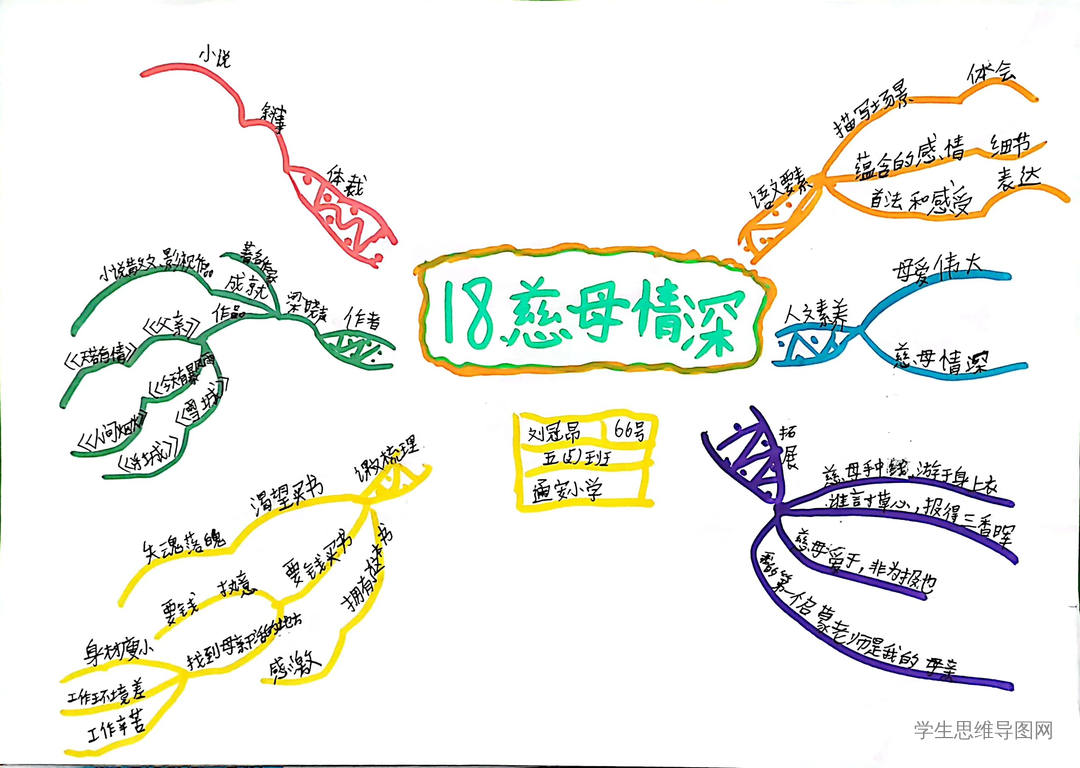 18.慈母情深
刘冠昂 66号
五(5)班
通安小学
体裁
叙事
小说
作者
梁晓声
著名作家
成就
小说散文、影视作品
作品
《父亲》
《天若有情》
《今夜有暴风雨》
《雪城》
《人间烟火》
课文梳理
渴望买书
失魂落魄
要钱买书
执意
要钱
找到母亲干活的地方
身材瘦小
工作环境差
工作辛苦
拥有这本书
感激
语文要素
描写场景
体会
蕴含的感情
细节
首法和感受
表达
人文素养
母爱伟大
慈母情深
拓展
慈母手中线,游子身上衣
谁言寸草心,报得三春晖
慈母爱子,非为报也
我的第一个启蒙老师是我的母亲
学生思维导图网